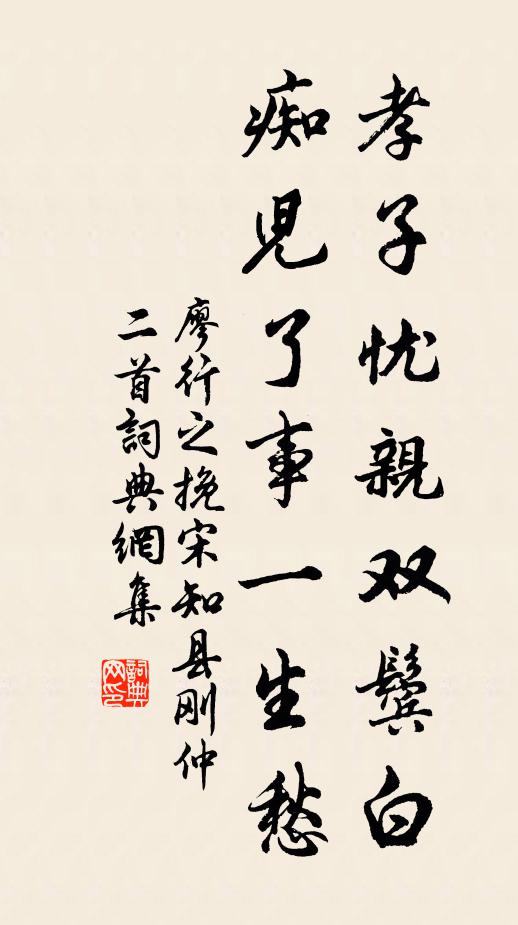 孝子忧親双鬢白
痴児了事一生愁
廖行之挽宋知县刚仲
二首詞典網集
詞典
网印